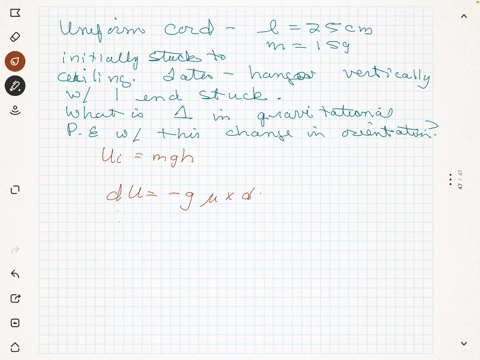 Uniform cord - l = 25 cm
m = 15g
initially stuck to
ceiling. Later - hangs vertically
w/ 1 end stuck.
What is Δ in gravitational
P.E w/ this change in orientation?
Ui = mgh
dU = -g μ x d
47 / 47